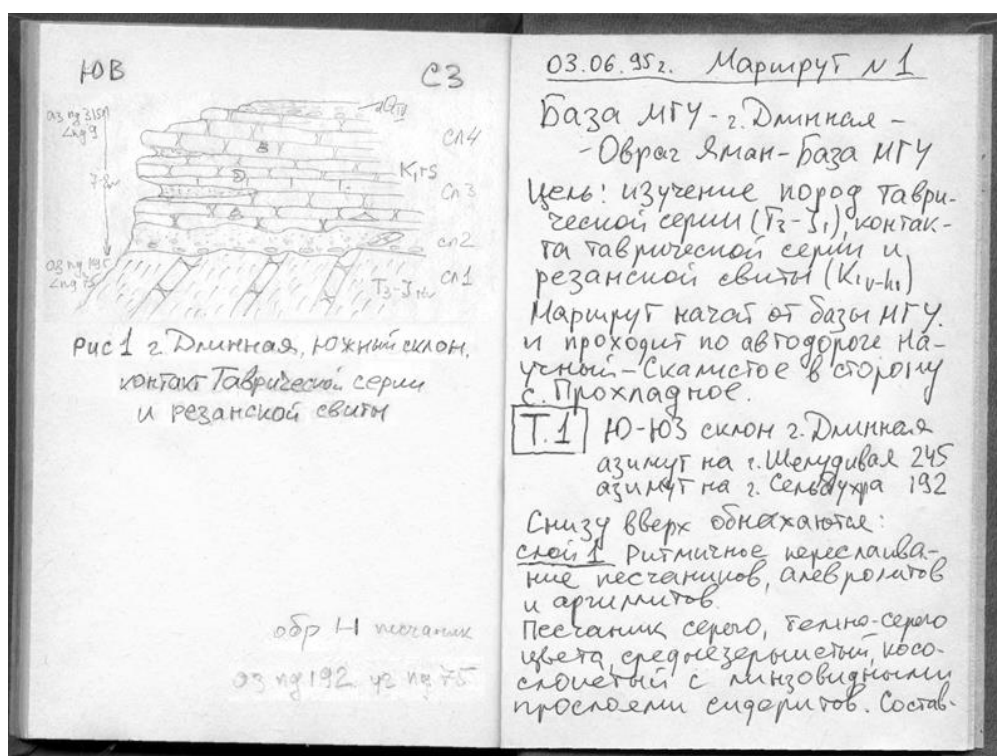 ЮВ
СЗ
аз пд 315
∠пд 9
dQIII
сл 4
K1rs
сл 3
7-8м
сл 2
аз пд 195
∠пд 75
T3-J1tv
сл 1
Рис 1 г. Длинная, южный склон,
контакт Таврической серии
и резанской свиты
обр 1-1 песчаник
аз пд 192 уг пд 75
03.06.95г. Маршрут N 1
База МГУ - г. Длинная -
- Овраг Яман - База МГУ
Цель: изучение пород таври-
ческой серии (T3-J1), контак-
та таврической серии и
резанской свиты (K1v-h1)
Маршрут начат от базы МГУ.
и проходит по автодороге На-
учный - Скалистое в сторону
с. Прохладное.
Т.1 Ю-ЮЗ склон г. Длинная
азимут на г. Шелудивая 245
азимут на г. Сельбухра 192
Снизу вверх обнажаются:
слой 1 Ритмичное переслаива-
ние песчаников, алевролитов
и аргиллитов.
Песчаник серого, темно-серого
цвета, среднезернистый, косо-
слоистый с линзовидными
прослоями сидеритов. Состав-